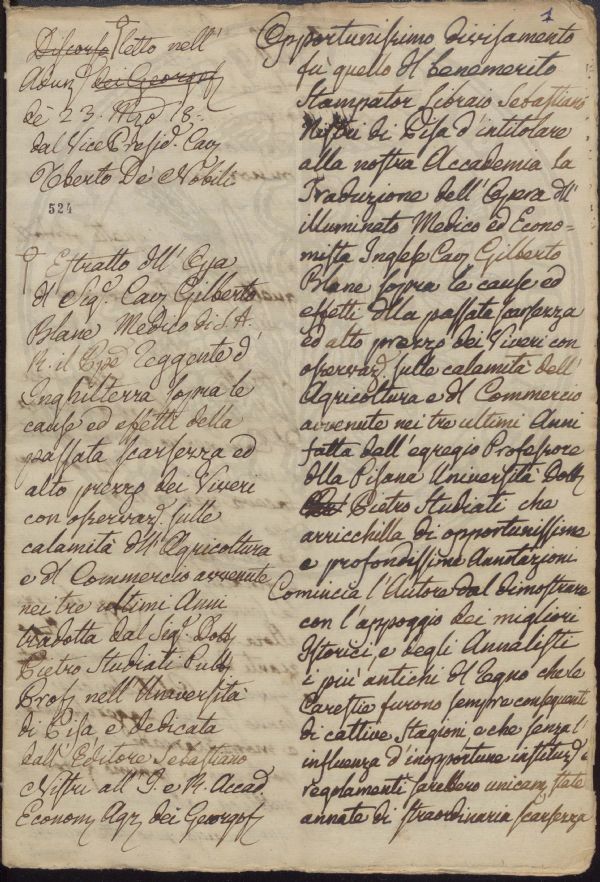 Discorso letto nell'
Adun: dei Georgof:
de' 23. Mzo 18-
dal Vice Presid.e Cav:
Uberto De' Nobili
524
Estratto dll' Opa
dl Sig.r Cav: Gilberto
Blane Medico di S. A.
R. il Ppe Reggente d'
Inghilterra sopra le
cause ed effetti della
passata scarsezza ed
alto prezzo dei Viveri
con osservaz: sulle
calamità dll' Agricoltura
e dl Commercio avvenute
nei tre ultimi Anni
tradotta dal Sig.r Dott:
Pietro Studiati Pub:
Prof: nell' Università
di Pisa e dedicata
dall' Editore Sebastiano
Nistri all' I. e R. Accad.
Econom: Agr: dei Georgof:
1
Opportunissimo divisamento
fù quello dl benemerito
Stampator Libraio Sebastiano
Nistri di Pisa d'intitolare
alla nostra Accademia la
Traduzione dell' Opera dll'
illuminato Medico ed Econo=
mista Inglese Cav: Gilberto
Blane sopra le cause ed
effetti dlla passata scarsezza
ed alto prezzo dei Viveri con
osservaz: sulle calamità dell'
Agricoltura e dl Commercio
avvenute nei tre ultimi Anni
fatta dell' egregio Professore
dlla Pisana Università Dott:
Pietro Studiati che
arricchilla di opportunissime
e profondissime Annotazioni
Comincia l'Autore dal dimostrare
con l'appoggio dei migliori
Istorici, e degli Annalisti
i più antichi dl Regno che le
Carestie furono sempre conseguenti
di cattive Stagioni, e che senza l'
influenza d'inopportune instituz: e
regolamenti sarebbero unicam: state
annate di straordinaria scarsezza